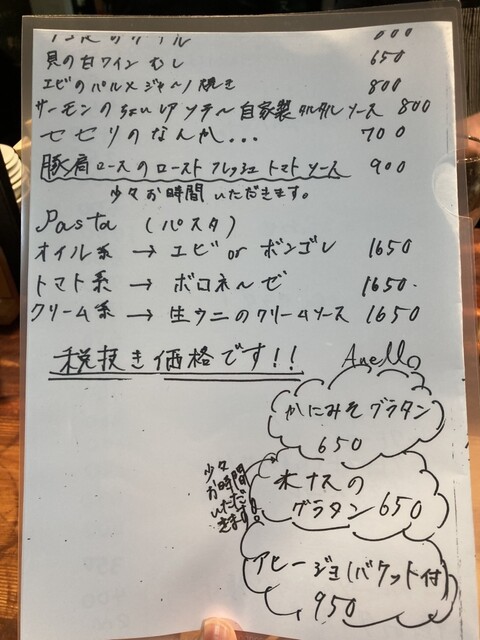 貝の白ワインむし 650
エビのパルメジャーノ焼き 800
サーモンのちょいレアソテー自家製タルタルソース 800
セセリのなんか... 700
豚肩ロースのローストフレッシュトマトソース 900
少々お時間いただきます。
Pasta (パスタ)
オイル系 → エビ or ボンゴレ 1650
トマト系 → ボロネーゼ 1650.
クリーム系 → 生ウニのクリームソース 1650
税抜き価格です!!
Anello
かにみそグラタン
650
少々
お時間
いただ
きます。
水ナスの
グラタン 650
アヒージョ(バケット付
950